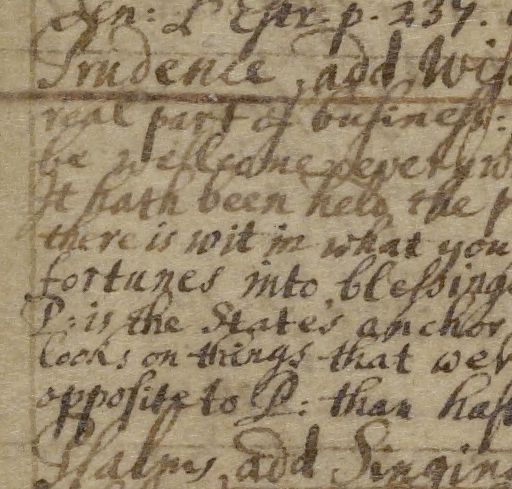 Sen: L'Estr. p. 237.
Prudence, add Wis
real part of business:
be wellcome every w
It hath been held the p
there is wit in what you
fortunes into blessings
P: is the States anchor
looks on things that wer
opposite to P: than hast
Psalms, add Singing